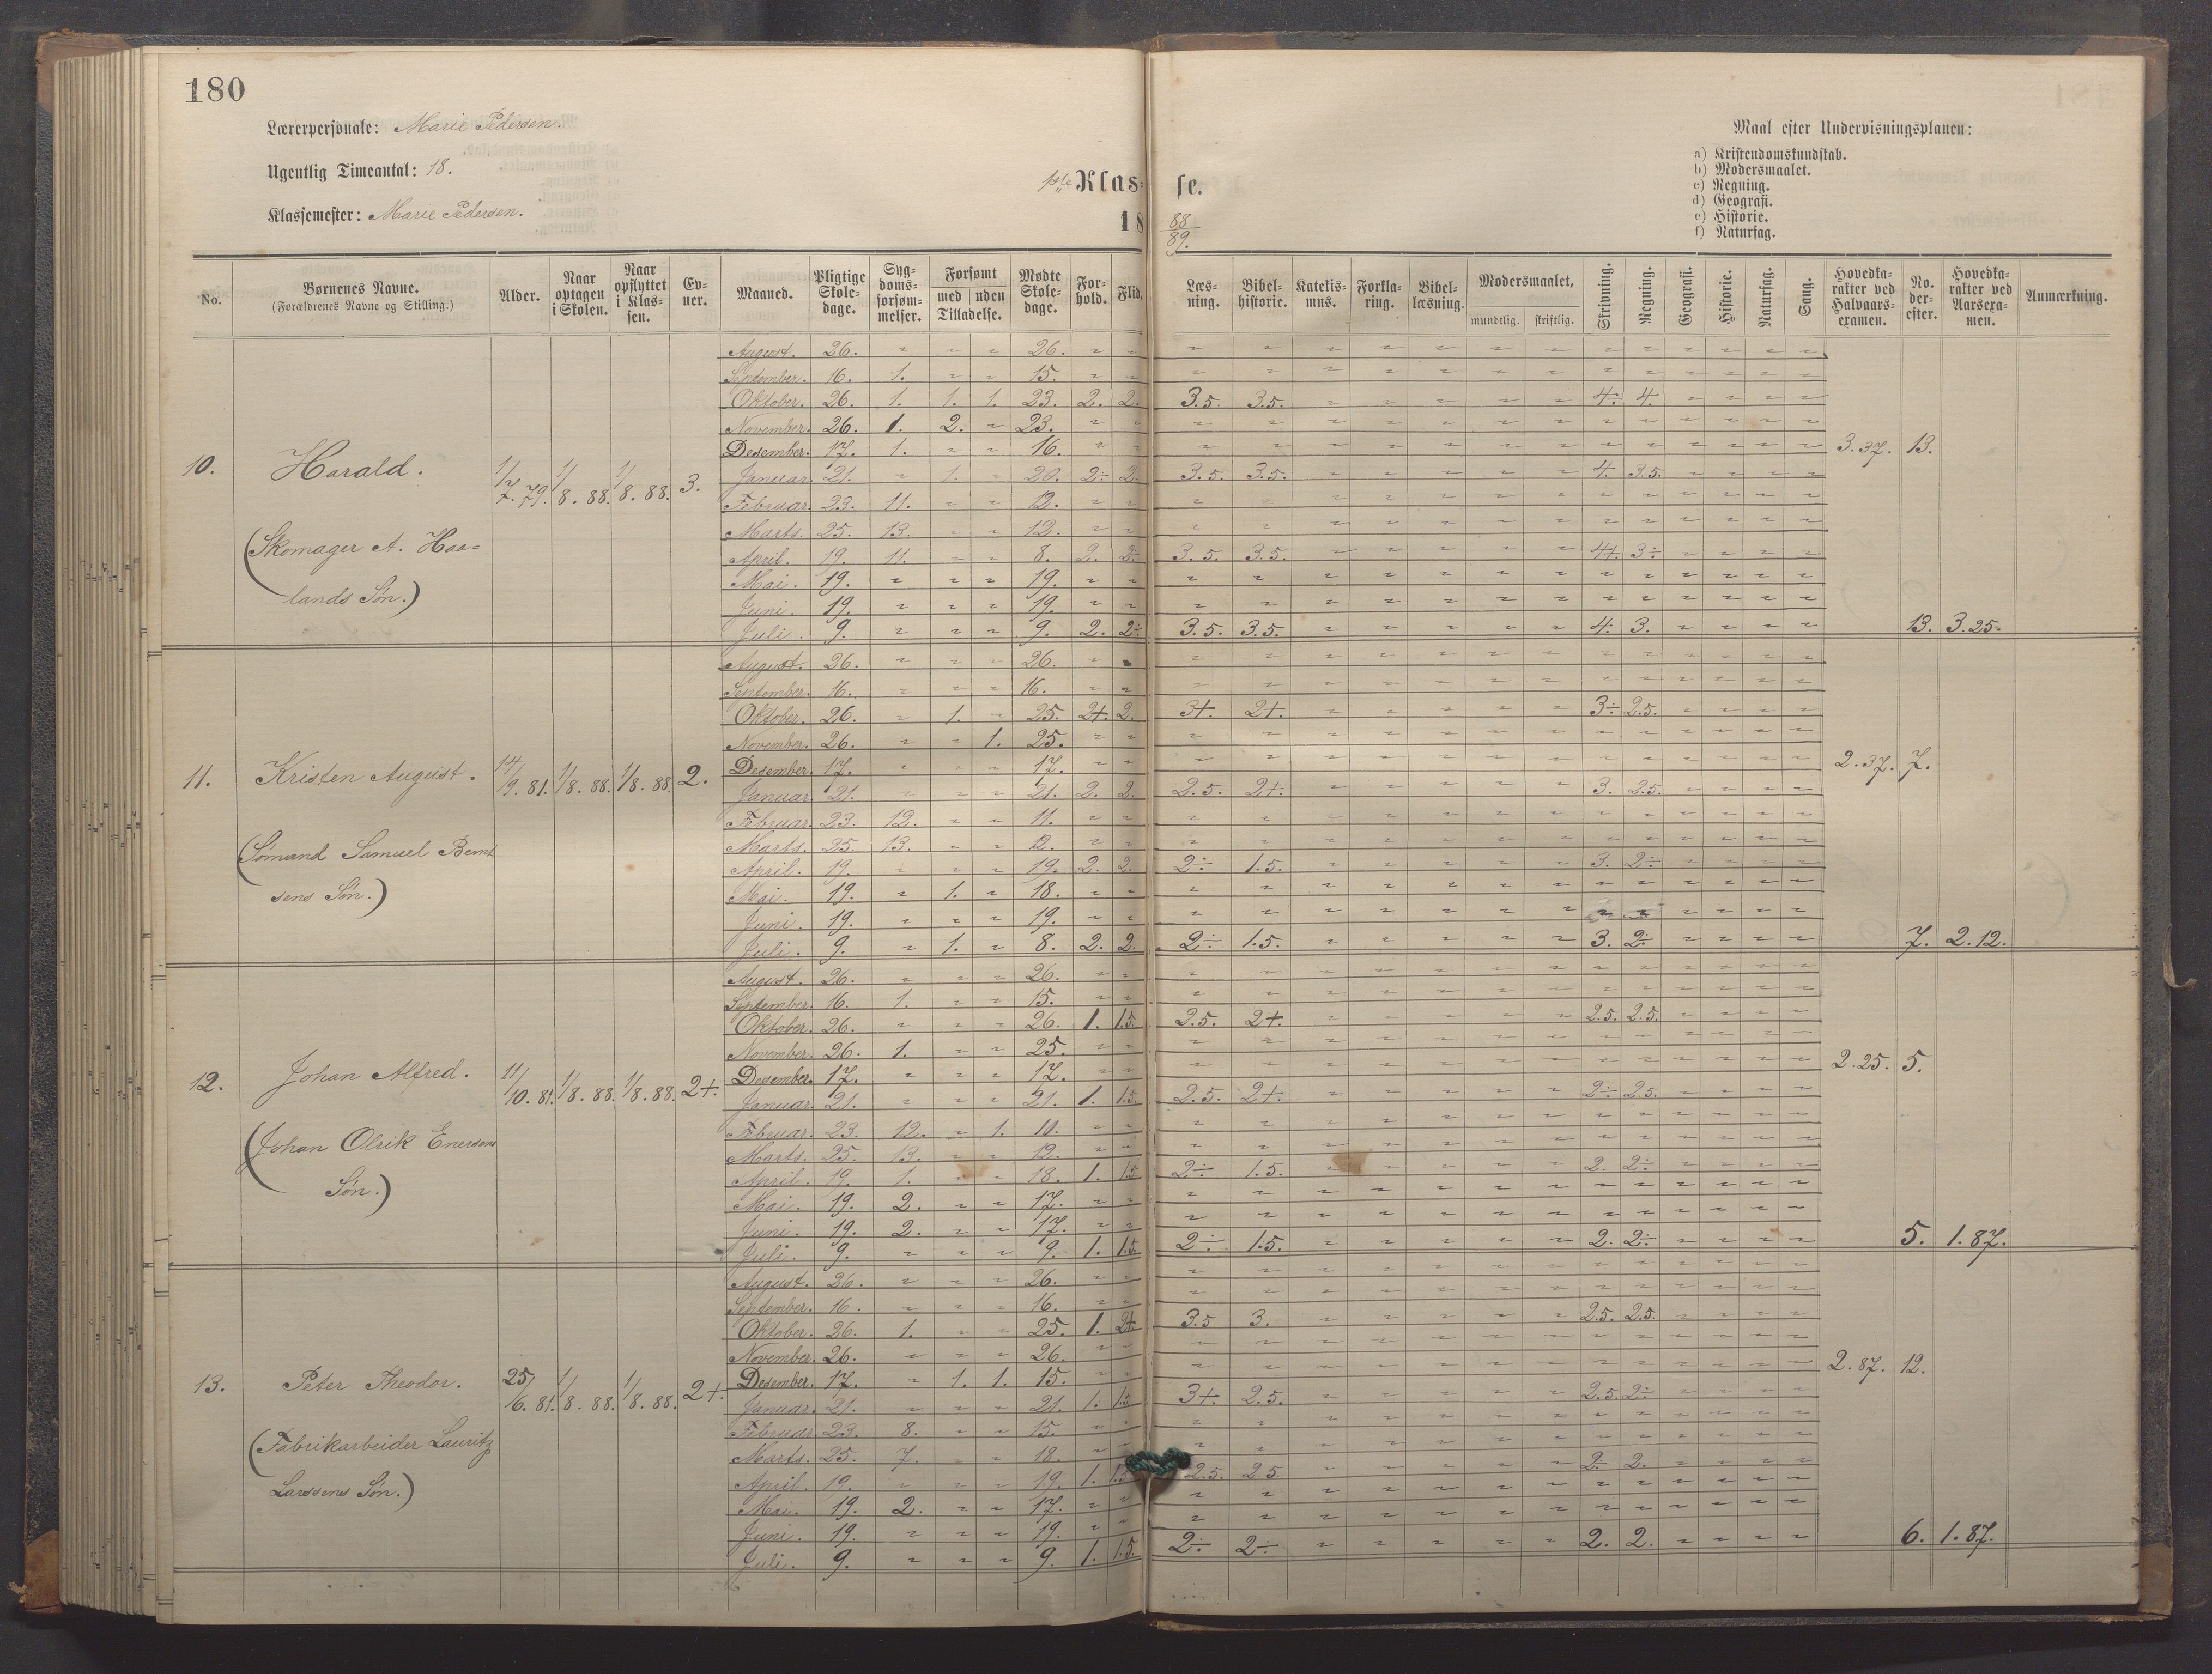 180
Lærerpersonale: Marie Pedersen.
Ugentlig Timeantal: 18.
Klassemester: Marie Pedersen.
1ste Klas- se.
18 88/89.
Maal efter Undervisningsplanen:
a) Kristendomskundskab.
b) Modersmaalet.
c) Regning.
d) Geografi.
e) Historie.
f) Naturfag.
No. Børnenes Navne. (Forældrenes Navne og Stilling.) Alder. Naar optagen i Skolen. Naar opflyttet i Klassen. Evner. Maaned. Pligtige Skoledage. Sygdomsforsømmelser. Forsømt med uden Tilladelse. Mødte Skoledage. Forhold. Flid. Læsning. Bibelhistorie. Katekismus. Forklaring. Bibellæsning. Modersmaalet, mundtlig. skriftlig. Skrivning. Regning. Geografi. Historie. Naturfag. Sang. Hovedkarakter ved Halvaarsexamen. No. derefter. Hovedkarakter ved Aarsexamen. Anmærkning.
10. Harald. (Skomager A. Haalands Søn.) 1/7. 79. 1/8. 88. 1/8. 88. 3.
August. 26. " " " 26. " " " " " " " " " " " " " " "
September. 16. 1. " " 15. " " " " " " " " " " " " " " "
Oktober. 26. 1. 1. 1. 23. 2. 2. 3.5. 3.5. " " " " " 4÷ 4. " " " "
November. 26. 1. 2. " 23. " " " " " " " " " " " " " " "
Desember. 17. 1. " " 16. " " " " " " " " " " " " " " " 3.37. 13.
Januar. 21. " 1. " 20. 2÷ 2. 3.5. 3.5. " " " " " 4. 3.5. " " " "
Februar. 23. 11. " " 12. " " " " " " " " " " " " " " "
Marts. 25. 13. " " 12. " " " " " " " " " " " " " " "
April. 19. 11. " " 8. 2. 2÷ 3.5. 3.5. " " " " " 4+. 3÷ " " " "
Mai. 19. " " " 19. " " " " " " " " " " " " " " "
Juni. 19. " " " 19. " " " " " " " " " " " " " " "
Juli. 9. " " " 9. 2. 2÷ 3.5. 3.5. " " " " " 4. 3. " " " " 13. 3.25.
11. Kristen August. (Sømand Samuel Berntsens Søn.) 14/9. 81. 1/8. 88. 1/8. 88. 2.
August. 26. " " " 26. " " " " " " " " " " " " " " "
September. 16. " " " 16. " " " " " " " " " " " " " " "
Oktober. 26. " 1. " 25. 2+. 2. 3+. 2+. " " " " " 3÷ 2.5. " " " "
November. 26. " " 1. 25. " " " " " " " " " " " " " " "
Desember. 17. " " " 17. " " " " " " " " " " " " " " " 2.37. 7.
Januar. 21. " " " 21. 2. 2. 2.5. 2+. " " " " " 3. 2.5. " " " "
Februar. 23. 12. " " 11. " " " " " " " " " " " " " " "
Marts. 25. 13. " " 12. " " " " " " " " " " " " " " "
April. 19. " " " 19. 2. 2. 2÷ 1.5. " " " " " 3. 2÷ " " " "
Mai. 19. " 1. " 18. " " " " " " " " " " " " " " "
Juni. 19. " " " 19. " " " " " " " " " " " " " " "
Juli. 9. " 1. " 8. 2. 2. 2÷ 1.5. " " " " " 3. 2÷ " " " " 7. 2.12.
12. Johan Alfred. (Johan Olrik Enersens Søn.) 11/10. 81. 1/8. 88. 1/8. 88. 2+.
August. 26. " " " 26. " " " " " " " " " " " " " " "
September. 16. 1. " " 15. " " " " " " " " " " " " " " "
Oktober. 26. " " " 26. 1. 1.5. 2.5. 2+. " " " " " 2.5. 2.5. " " " "
November. 26. 1. " " 25. " " " " " " " " " " " " " " "
Desember. 17. " " " 17. " " " " " " " " " " " " " " " 2.25. 5.
Januar. 21. " " " 21. 1. 1.5. 2.5. 2+. " " " " " 2÷ 2.5. " " " "
Februar. 23. 12. " 1. 10. " " " " " " " " " " " " " " "
Marts. 25. 13. " " 12. " " " " " " " " " " " " " " "
April. 19. 1. " " 18. 1. 1.5. 2÷ 1.5. " " " " " 2. 2÷ " " " "
Mai. 19. 2. " " 17. " " " " " " " " " " " " " " "
Juni. 19. 2. " " 17. " " " " " " " " " " " " " " "
Juli. 9. " " " 9. 1. 1.5. 2÷ 1.5. " " " " " 2. 2÷ " " " " 5. 1.87.
13. Peter Theodor. (Fabrikarbeider Lauritz Larssens Søn.) 25/6. 81. 1/8. 88. 1/8. 88. 2+.
August. 26. " " " 26. " " " " " " " " " " " " " " "
September. 16. " " " 16. " " " " " " " " " " " " " " "
Oktober. 26. 1. " " 25. 1. 2+. 3.5 3. " " " " " 2.5. 2.5. " " " "
November. 26. " " " 26. " " " " " " " " " " " " " " "
Desember. 17. " 1. 1. 15. " " " " " " " " " " " " " " " 2.87. 12.
Januar. 21. " " " 21. 1. 1.5 3+. 2.5. " " " " " 2.5. 2÷ " " " "
Februar. 23. 8. " " 15. " " " " " " " " " " " " " " "
Marts. 25. 7. " " 18. " " " " " " " " " " " " " " "
April. 19. " " " 19. 1. 1.5 2.5. 2.5 " " " " " 2÷ 2. " " " "
Mai. 19. 2. " " 17. " " " " " " " " " " " " " " "
Juni. 19. " " " 19. " " " " " " " " " " " " " " "
Juli. 9. " " " 9. 1. 1.5. 2÷ 2÷ " " " " " 2. 2. " " " " 6. 1.87.